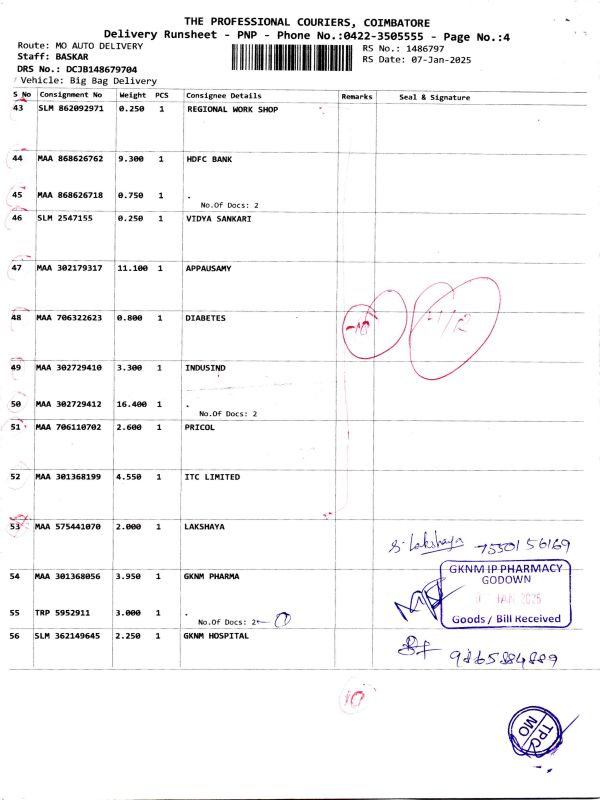 THE PROFESSIONAL COURIERS, COIMBATORE
Delivery Runsheet - PNP - Phone No.:0422-3505555 - Page No.:4
Route: MO AUTO DELIVERY
RS No.: 1486797
Staff: BASKAR
RS Date: 07-Jan-2025
DRS No.: DCJB148679704
Vehicle: Big Bag Delivery
S No Consignment No Weight PCS Consignee Details Remarks Seal & Signature
43 SLM 862092971 0.250 1 REGIONAL WORK SHOP
44 MAA 868626762 9.300 1 HDFC BANK
45 MAA 868626718 0.750 1 .
No.Of Docs: 2
46 SLM 2547155 0.250 1 VIDYA SANKARI
47 MAA 302179317 11.100 1 APPAUSAMY
48 MAA 706322623 0.800 1 DIABETES
49 MAA 302729410 3.300 1 INDUSIND
50 MAA 302729412 16.400 1 .
No.Of Docs: 2
51 MAA 706110702 2.600 1 PRICOL
52 MAA 301368199 4.550 1 ITC LIMITED
53 MAA 575441070 2.000 1 LAKSHAYA
S. Lakshaya 7550156169
54 MAA 301368056 3.950 1 GKNM PHARMA
GKNM IP PHARMACY
GODOWN
JAN 2025
Goods / Bill Received
55 TRP 5952911 3.000 1 .
No.Of Docs: 2
56 SLM 362149645 2.250 1 GKNM HOSPITAL
9865884889
10
TPC
MO